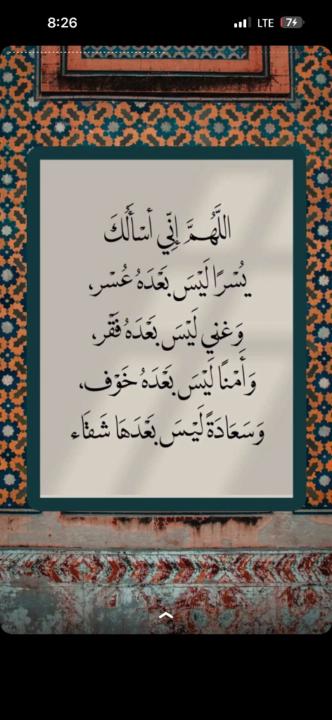 8:26
LTE
7
اللَّهُمَّ إِنِّي أَسْأَلُكَ
يُسْرًا لَيْسَ بَعْدَهُ عُسْر،
وَغِنى لَيْسَ بَعْدَهُ فَقْر،
وَأَمْنًا لَيْسَ بَعْدَهُ خَوْف،
وَسَعَادَةً لَيْسَ بَعْدَهَا شَقَاء